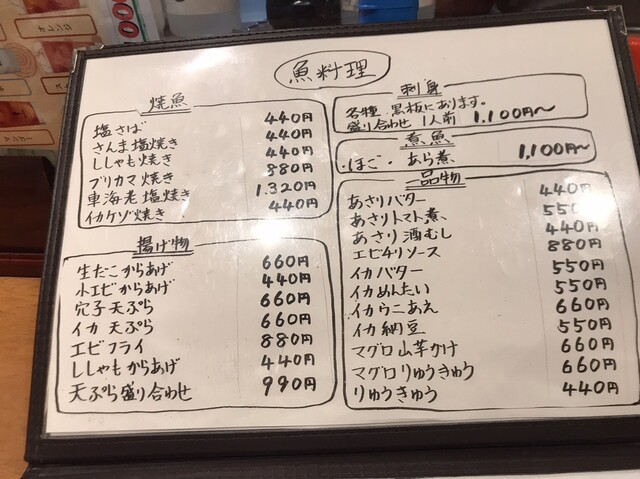 魚料理
焼魚
塩さば 440円
さんま塩焼き 440円
ししゃも焼き 440円
ブリカマ焼き 880円
車海老塩焼き 1.320円
イカゲソ焼き 440円
揚げ物
生だこからあげ 660円
小エビからあげ 440円
穴子天ぷら 660円
イカ天ぷら 660円
エビフライ 880円
ししゃもからあげ 440円
天ぷら盛り合わせ 990円
刺身
各種 黒板にあります。
盛り合わせ 1人前 1,100円〜
煮魚
・ほご・あら煮 1,100円〜
品物
あさりバター 440円
あさりトマト煮 550円
あさり酒むし 440円
エビチリソース 880円
イカバター 550円
イカめんたい 550円
イカウニあえ 660円
イカ納豆 550円
マグロ山芋かけ 660円
マグロりゅうきゅう 660円
りゅうきゅう 440円